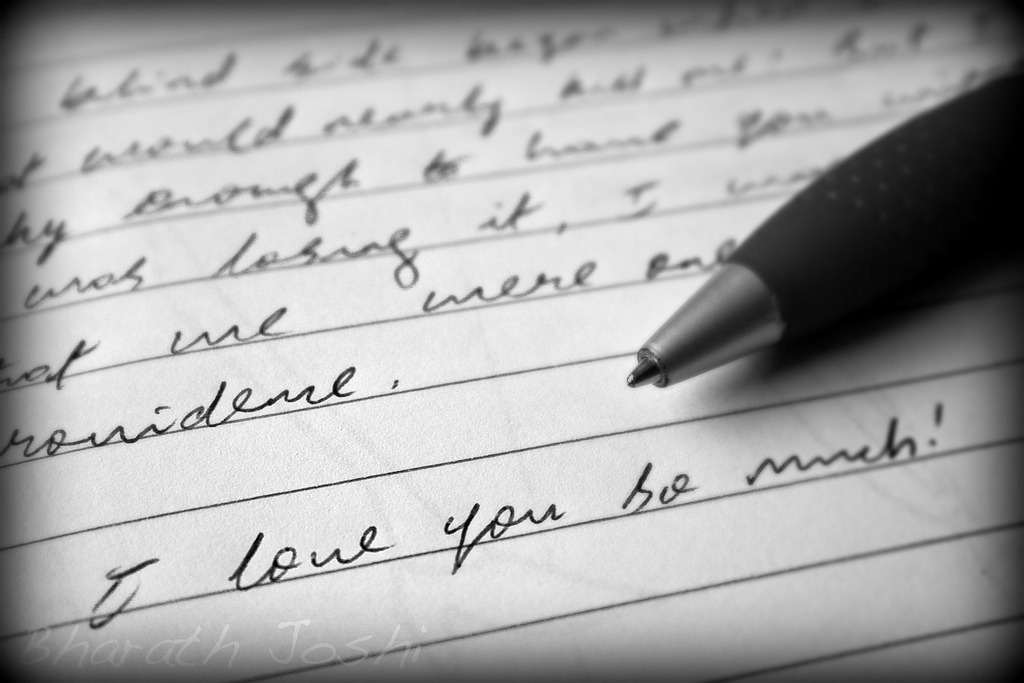 behind side began
would nearly kill me. But I
enough to have you
was losing it, I was
that we were one
rovidence.
I love you so much!
Bharath Joshi